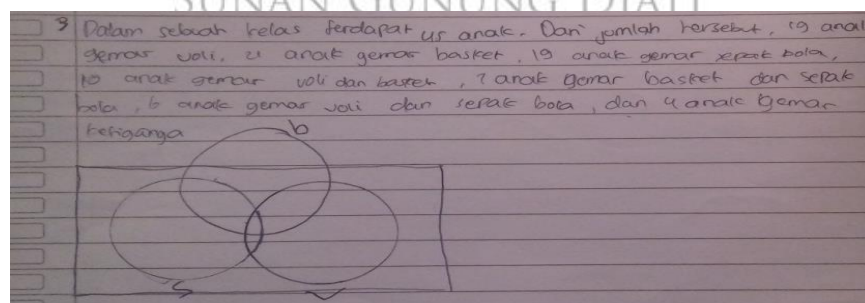 SUNAN GUNUNG DJATI
3 Dalam sebuah kelas terdapat 45 anak. Dari jumlah tersebut, 19 anak
gemar voli, 21 anak gemar basket, 19 anak gemar sepak bola,
10 anak gemar voli dan basket, 7 anak gemar basket dan sepak
bola, 6 anak gemar voli dan sepak bola, dan 4 anak gemar
ketiganya
b
S V